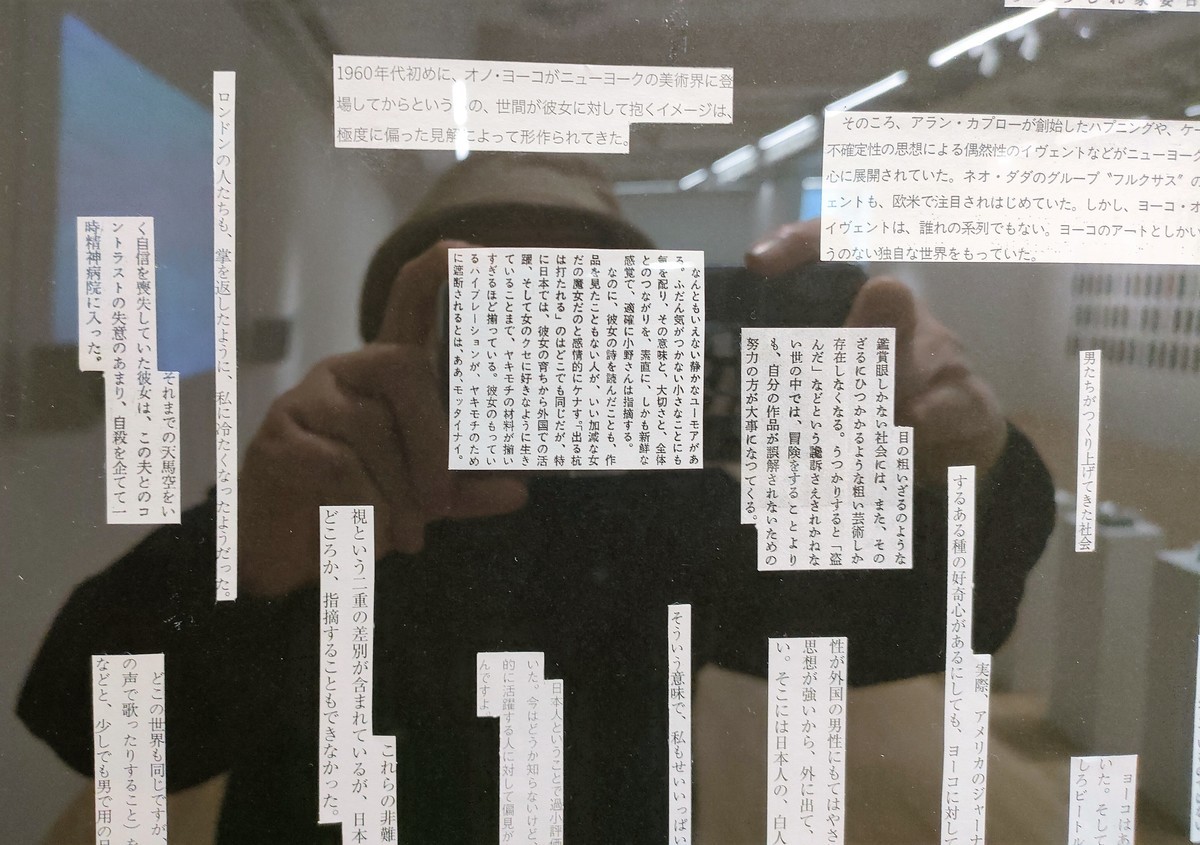 1960年代初めに、オノ・ヨーコがニューヨークの美術界に登
場してからという の、世間が彼女に対して抱くイメージは、
極度に偏った見解によって形作られてきた。
そのころ、アラン・カプローが創始したハプニングや、ケー
不確定性の思想による偶然性のイヴェントなどがニューヨーク
心に展開されていた。ネオ・ダダのグループ〝フルクサス〟の
ェントも、欧米で注目されはじめていた。しかし、ヨーコ・オ
イヴェントは、誰れの系列でもない。ヨーコのアートとしかい
うのない独自な世界をもっていた。
男たちがつくり上げてきた社会
目の粗いざるのような
鑑賞眼しかない社会には、また、その
ざるにひつかかるような粗い芸術しか
存在しなくなる。うつかりすると「盗
んだ」などという讒訴さえされかねな
い世の中では、冒険をすることより
も、自分の作品が誤解されないための
努力の方が大事になつてくる。
なんともいえない静かなユーモアがあ
る。ふだん気がつかない小さなことにも
気を配り、その意味と、大切さと、全体
とのつながりを、素直に、しかも新鮮な
感覚で、適確に小野さんは指摘する。
なのに、彼女の詩を読んだことも、作
品を見たこともない人が、いい加減な女
だの魔女だのと感情的にケナす。「出る杭
は打たれる」のはどこでも同じだが、特
に日本では、彼女の育ちから外国での活
躍、そして女のクセに好きなように生き
ていることまで、ヤキモチの材料が揃い
すぎるほど揃っている。彼女のもってい
るハイブレーションが、ヤキモチのため
に遮断されるとは、ああ、モッタイナイ。
ロンドンの人たちも、掌を返したように、私に冷たくなったようだった。
それまでの天馬空をい
く自信を喪失していた彼女は、この夫とのコ
ントラストの失意のあまり、自殺を企てて一
時精神病院に入った。
実際、アメリカのジャーナ
するある種の好奇心があるにしても、ヨーコに対して
ヨーコはあ
いた。そして
しろビートル
性が外国の男性にもてはやさ
思想が強いから、外に出て、
い。そこには日本人の、白人
そういう意味で、私もせいいっぱい
日本人ということで過小評価
いた。今はどうか知らないけど、
的に活躍する人に対して偏見が
んですよ
これらの非難
視という二重の差別が含まれているが、日本
どころか、指摘することもできなかった。
どこの世界も同じですが、
の声で歌ったりすること）を
などと、少しでも男で用の